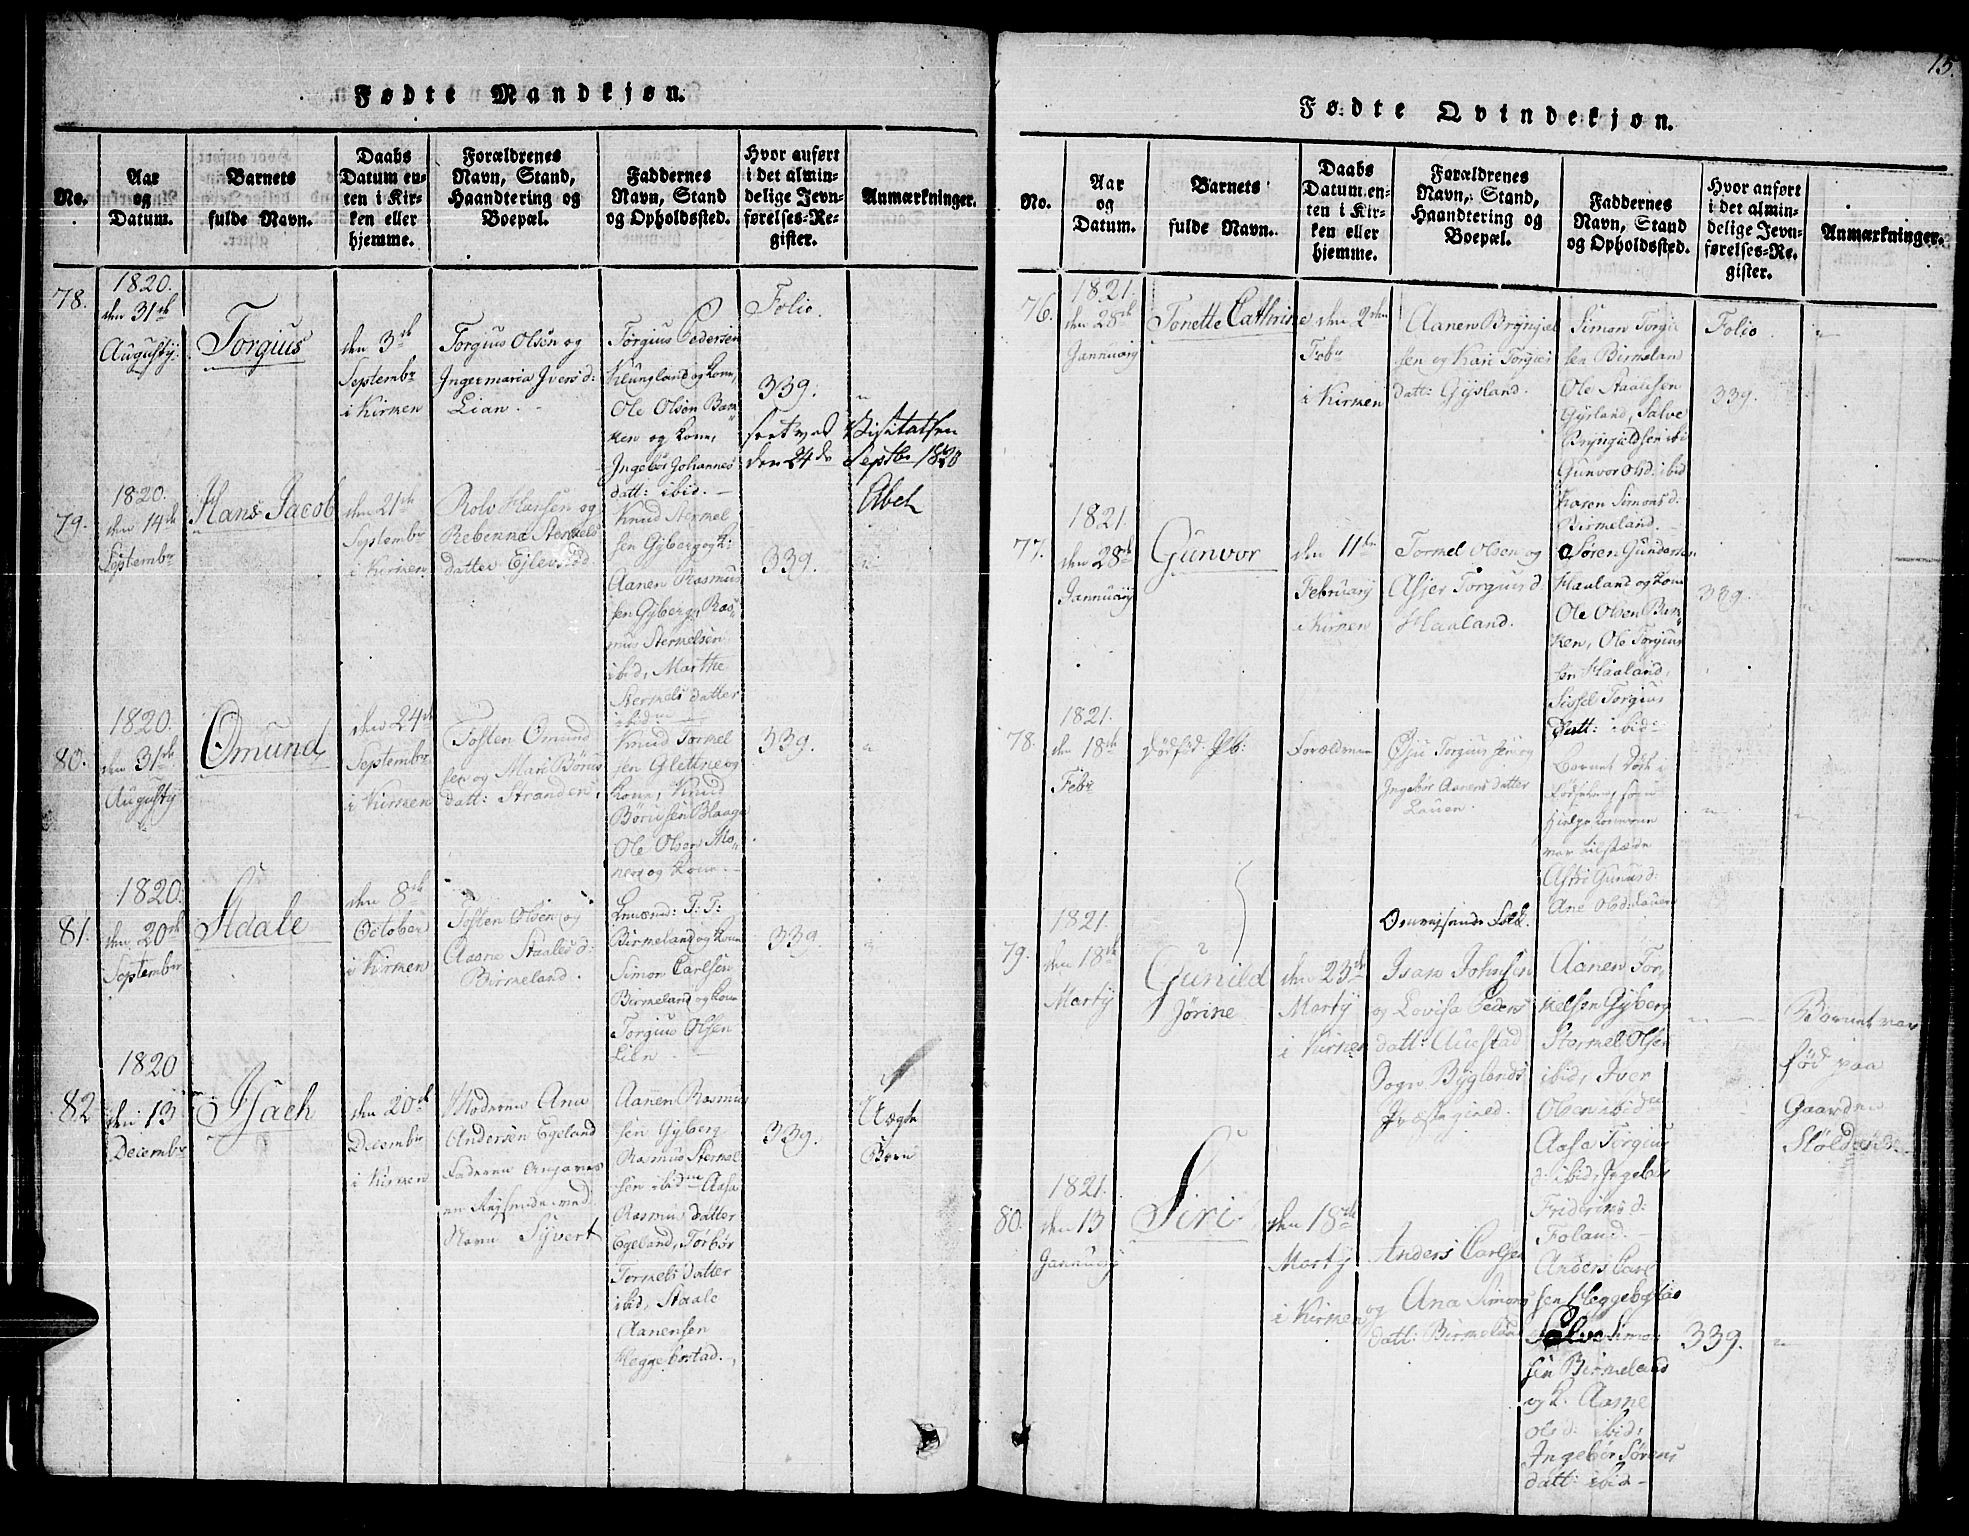 Fødte Mandkjøn.
No.
Aar og Datum.
Barnets fulde Navn.
Daabs Datum enten i Kirken eller hjemme.
Forældrenes Navn, Stand, Haandtering og Boepæl.
Faddernes Navn, Stand og Opholdssted.
Hvor anført i det almindelige Jevnførelses-Register.
Anmærkninger.
78.
1820.
den 31te
Augusty.
Torgius
den 3de
Septembr
i Kirken
Torgius Olsen og
Ingermaria Ivers d:
Lian.
Torgius Pedersen
Klungland og Kone,
Ole Olsen Ban
ken og Kone,
Ingebor Johannes
datt: ibid.
Folio.
339.
seet ved Visitatsen
den 24de Septbr 1820
Abel
79.
1820.
den 14de
Septembr
Hans Jacob
den 21de
Septembr
i Kirken
Rolv Hansen og
Rebenna Stermels
datter Ejlevstad
Knud Stermel
sen Gyberg og K:
Aanen Rasmus
sen Gyberg, Ras
mus Stermelsen
ibid, Marthe
Stermels datter
ibid
339.
80.
1820.
den 31te
Augusty
Omund
den 24de
Septembr
i Kirken
Tosten Omund
sen og Mari Børus
datt: Stranden,
Knud Tormel
sen Glettne og
Kone, Knud
Børusen Blaage
Ole Olsen Mo
ner og Kone
339.
81.
1820.
den 20de
Septembr
Staale
den 8de
October
i Kirken
Tosten Olsen og
Aasne Staales d:
Birmeland.
T: T:
Birmeland og Kone
Simon Carlsen
Birmeland og Kone
Torgius Olsen
Lien
339
82
1820
den 13
Decembr
Isach
den 20de
Decembr
i Kirken
Moderen Ana
Andersen Egeland
Faderen Angaves
en Reysende med
Navn Syvert
Aanen Rasmus
sen Gyberg
Rasmus Stermel
sen ibid Aasa
Rasmus datter
Egeland, Torbor
Tormels datter
ibid, Staale
Aanensen
Heggebostad.
339.
Uægte
Barn
15.
Fødte Qvindekjøn.
No.
Aar og Datum.
Barnets fulde Navn.
Daabs Datum enten i Kirken eller hjemme.
Forældrenes Navn, Stand, Haandtering og Boepæl.
Faddernes Navn, Stand og Opholdssted.
Hvor anført i det almindelige Jevnførelses-Register.
Anmærkninger.
76.
1821.
den 28de
Jannuary
Tonette Cathrine
den 2den
Febr
i Kirken
Aanen Brynjel
sen og Kari Torgius
datt: Gysland.
Simon Torgiu
sen Birmelan
Ole Staalesen
Gysland, Salve
Bryngieldsen ibi
Gunvor Ols d. ibid
Karen Simons d:
Birmeland.
Folio
339.
77.
1821.
den 28de
Jannuary
Gunvor
den 11te
February
i Kirken
Tormel Olsen og
Asjer Torgius d.
Haaland.
Søren Gundersen
Haaland og Kone
Ole Olsen Ban
ken, Ole Torgius
sen Haaland,
Sissel Torgius
Datt: ibid
339.
78.
1821.
den 18de
Febr
Dødfød:
Forældrene
Torgiussen og
Ingebor Aanens datter
Lauen.
Barnet døde i
Fødselen, som
Hielpekonerne
var tilstæde
Astri Gunus d:
Ane Ols d. Lauen
79.
1821.
den 18de
Marty
Gunild
Jørine
den 25de
Marty
i Kirken
Omreysende Folk.
Isak Johnsen
og Lovisa Peders
datt: Austad
Sogn Byglands
Præstegield.
Aanen Tor
kelsen Gyberg
Stermel Olsen
ibid, Iver
Olsen ibid
Aasa Torgius
d: ibid, Ingebor
Friderics d:
Foland.
Barnet var
fød paa
Gaarden
80.
1821.
den 13
Jannuary
Siri
den 18de
Marty
i Kirken
Anders Carlsen
og Ana Simons
datt: Birmeland
Anders Carl
sen Heggebostad
Salve Simon
sen Birmeland
og K. Aasne
Ols d: ibid,
Ingebor Sørens
datt: ibid
339.